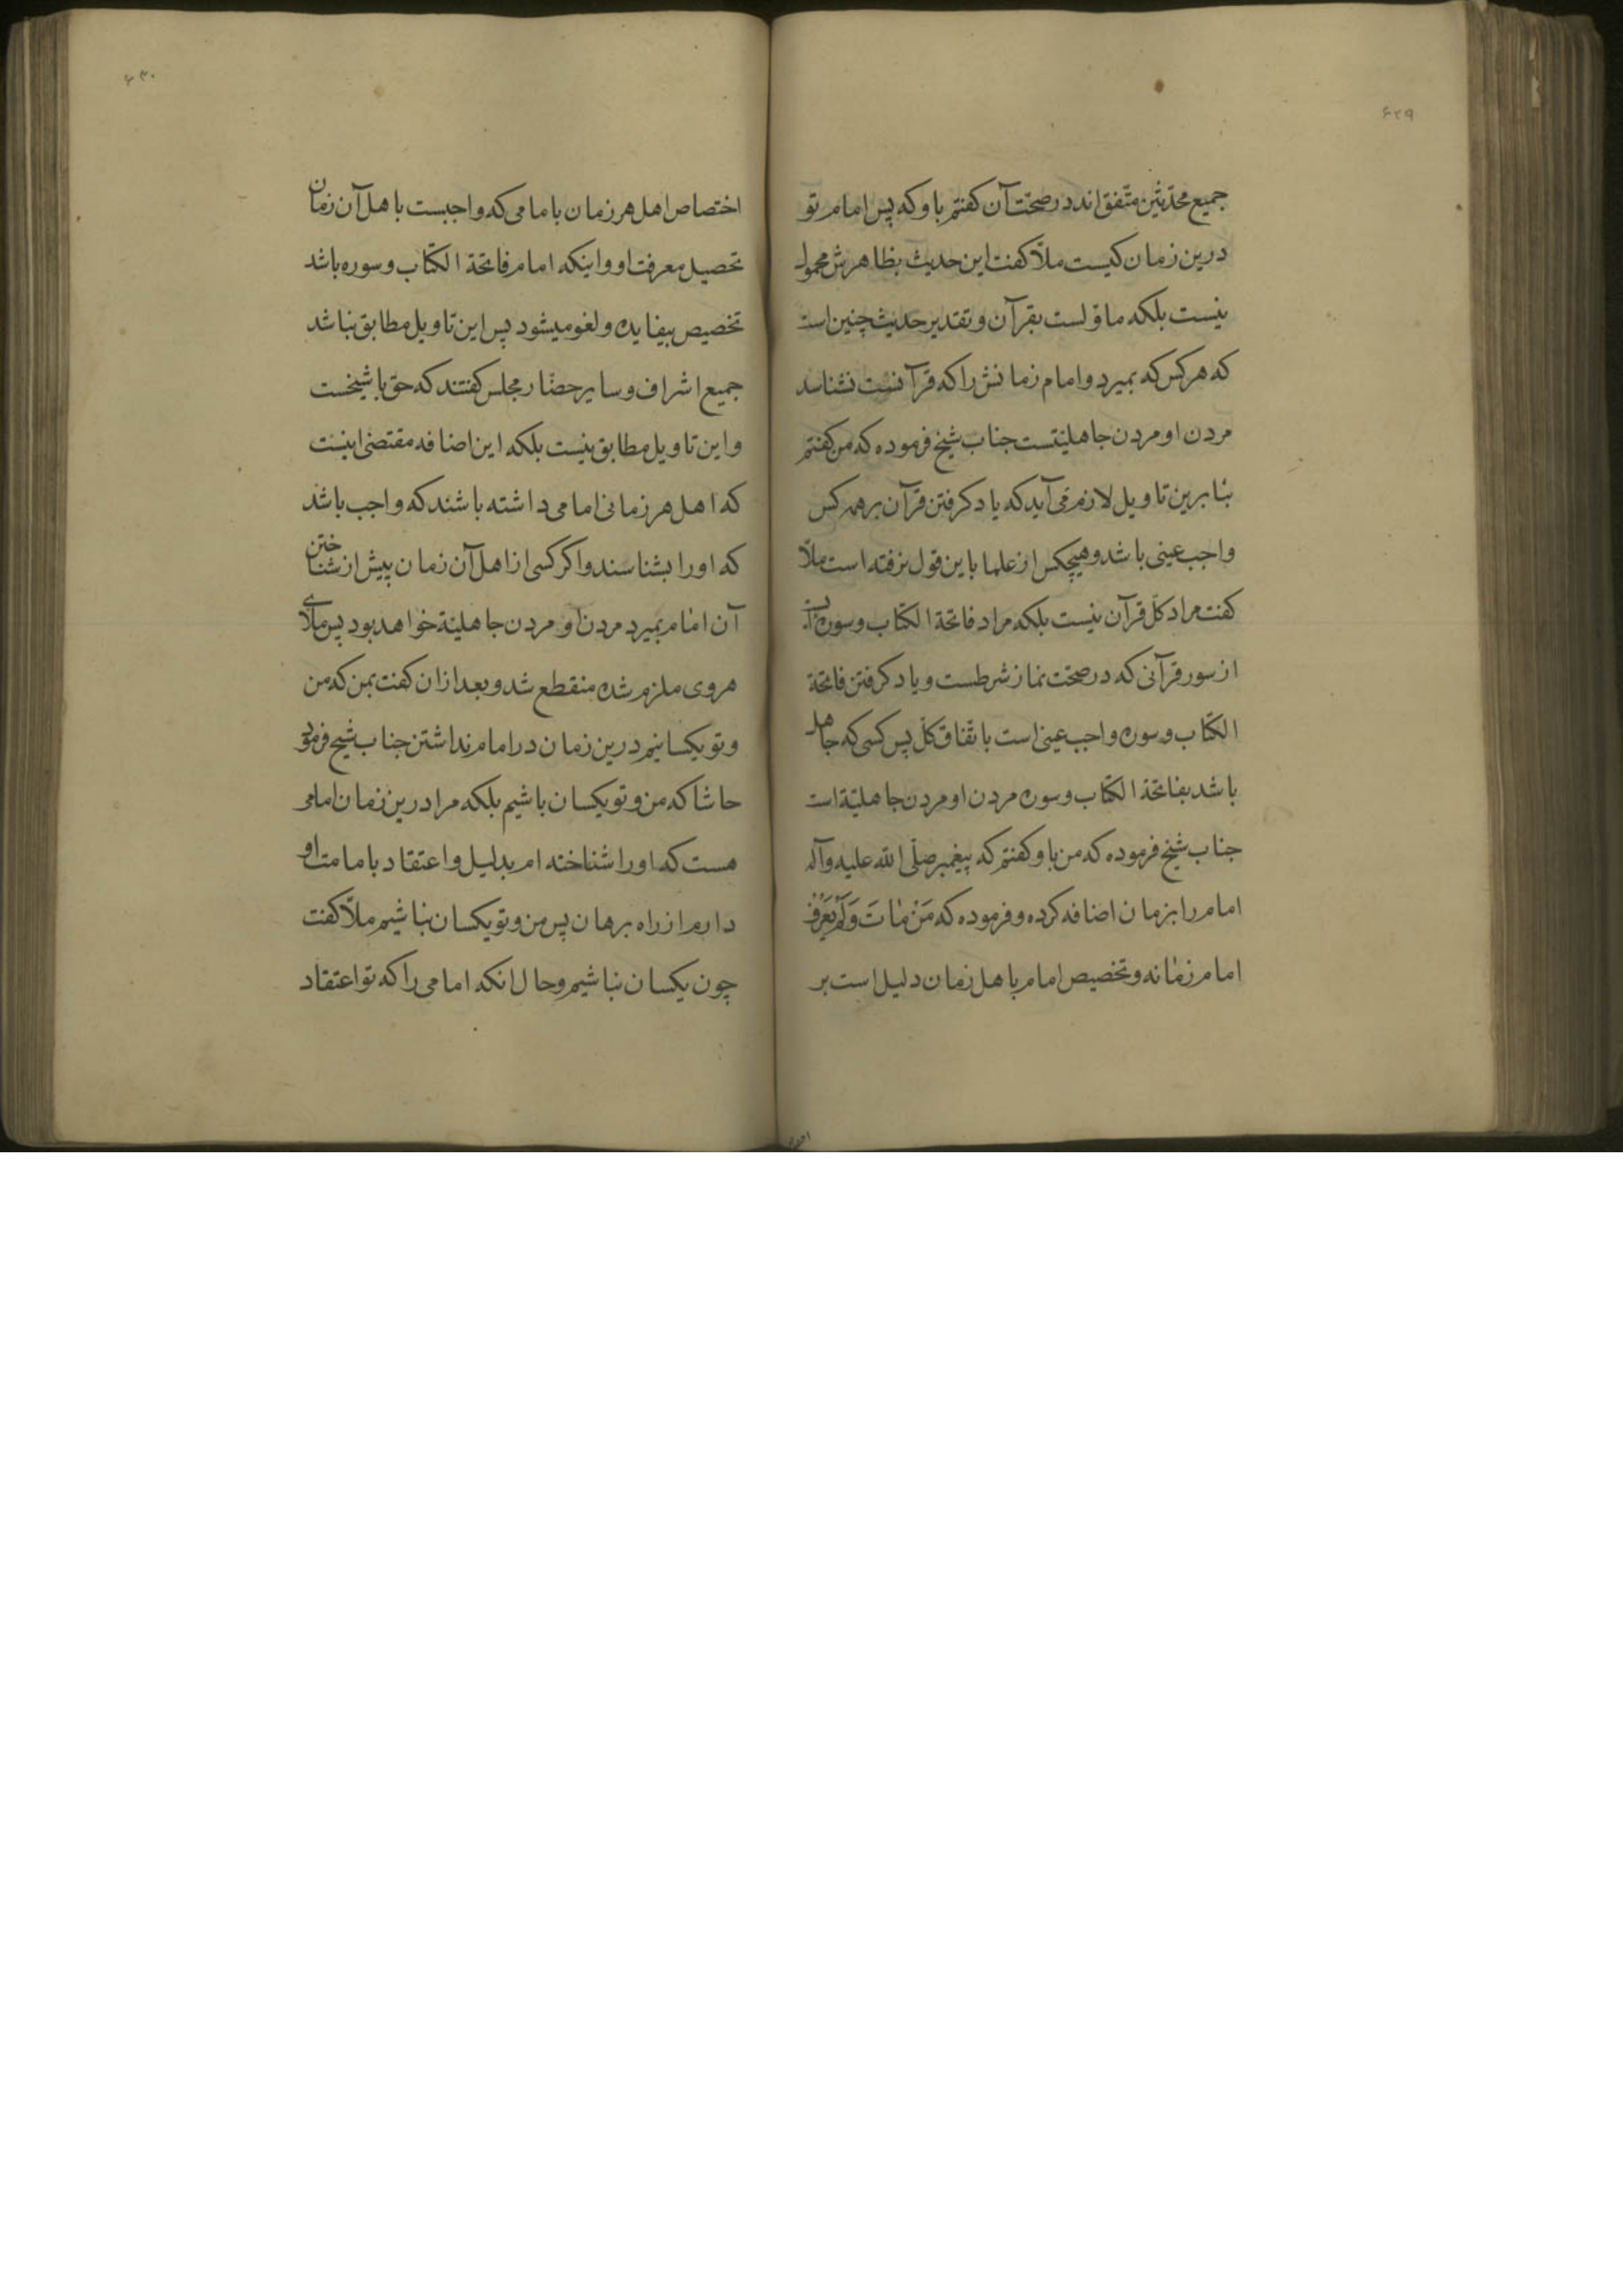 ۶۲۹
جمیع محدّثین متّفق اند در صحّت آن کفتم باو که پس امام تو
درین زمان کیست ملّا کفت این حدیث بظاهرش محمول
نیست بلکه ماوّلست بقرآن و تقدیر حدیث چنین است
که هر کس که بمیرد و امام زمانش را که قرآنست نشناسد
مردن او مردن جاهلیتست جناب شیخ فرموده که من کفتم
بنابرین تاویل لازم می آید که یاد کرفتن قرآن بر همه کس
واجب عینی باشد و هیچکس از علما باین قول نرفته است ملّا
کفت مراد کلّ قرآن نیست بلکه مراد فاتحة الکتاب و سوره
از سور قرآنی که در صحّت نماز شرطست و یاد کرفتن فاتحة
الکتاب و سوره واجب عینی است باتّفاق کلّ پس کسی که جاهل
باشد بفاتحة الکتاب و سوره مردن او مردن جاهلیّة است
جناب شیخ فرموده که من باو کفتم که پیغمبر صلّی الله علیه وآله
امام را بزمان اضافه کرده و فرموده که مَنْ مٰاتَ وَلَمْ یَعْرِفْ
امام زمٰانه و تخصیص امام باهل زمان دلیل است بر
۶۳۰
اختصاص اهل هر زمان بامامی که واجبست باهل آن زمان
تحصیل معرفت او و اینکه امام فاتحة الکتاب و سوره باشد
تخصیص بیفایده و لغو میشود پس این تاویل مطابق نباشد
جمیع اشراف و سایر حضّار مجلس کفتند که حق با شیخست
و این تاویل مطابق نیست بلکه این اضافه مقتضی اینست
که اهل هر زمانی امامی داشته باشند که واجب باشد
که او را بشناسند و اکر کسی از اهل آن زمان پیش از شناختن
آن امام بمیرد مردن او مردن جاهلیّة خواهد بود پس ملّای
هروی ملزم شده منقطع شد و بعد ازان کفت بمن که من
و تو یکسانیم درین زمان در امام نداشتن جناب شیخ فرمود
حاشا که من و تو یکسان باشیم بلکه مرا درین زمان امامی
هست که او را شناخته ام بدلیل و اعتقاد بامامت او
دارم از راه برهان پس من و تو یکسان نباشیم ملّا کفت
چون یکسان نباشیم و حال انکه امامی را که تو اعتقاد